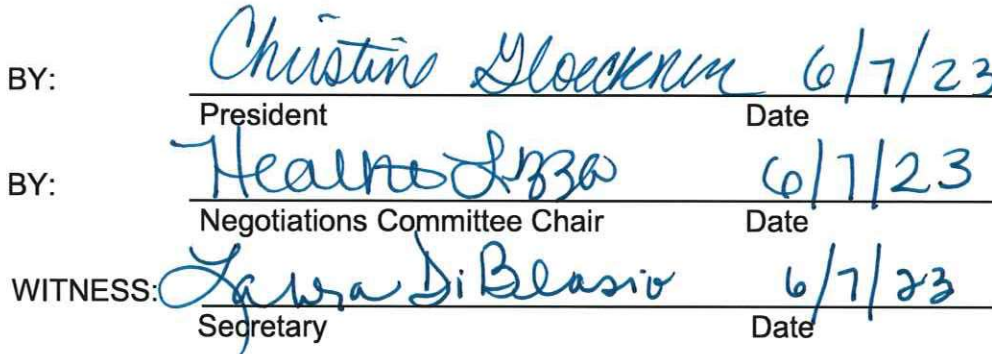 BY: Christine Gloeckner 6/7/23
President Date
BY: Heather Lizza 6/7/23
Negotiations Committee Chair Date
WITNESS: Laura DiBlasio 6/7/23
Secretary Date